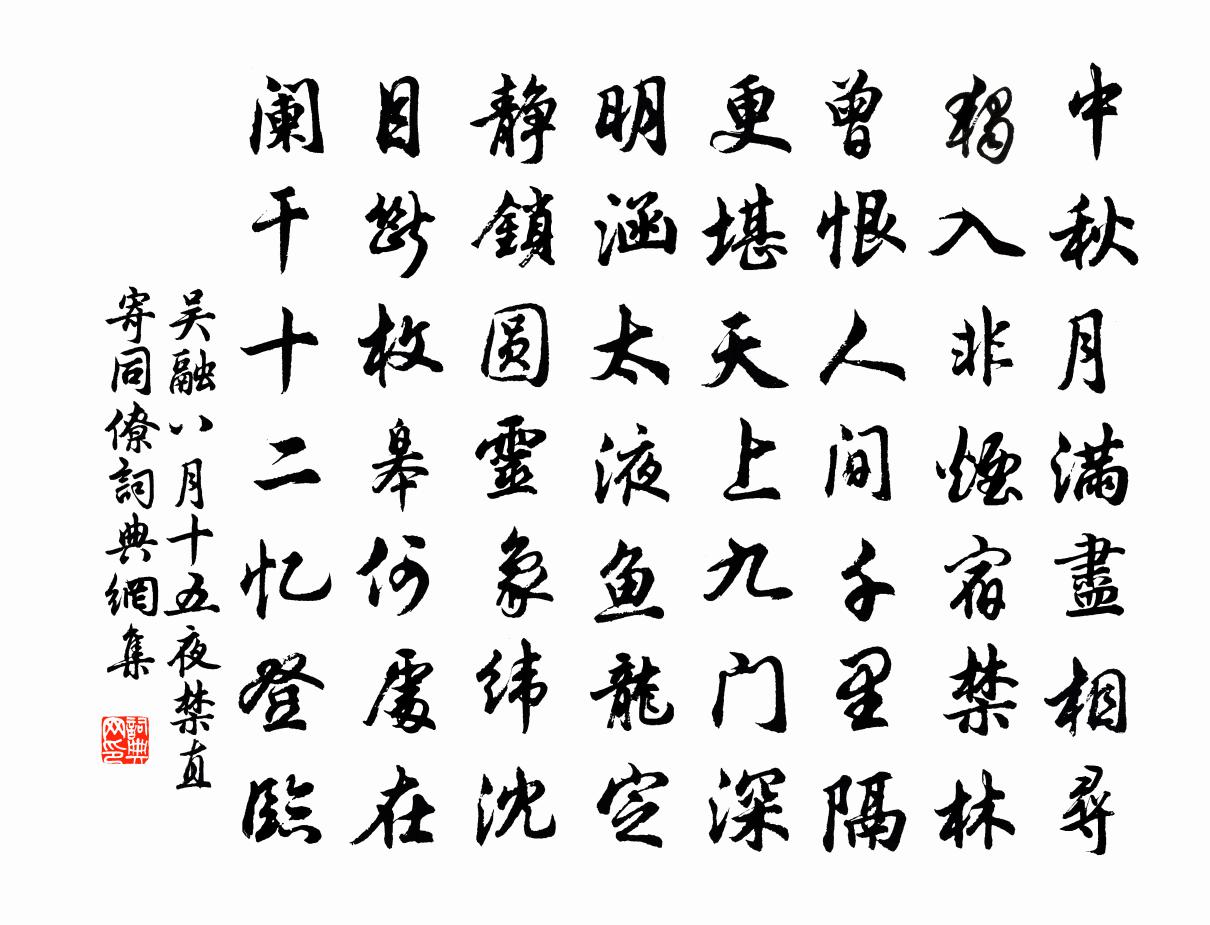 中秋月满盡相尋
獨入非煙宿禁林
曾恨人间千里隔
更堪天上九门深
明涵太液鱼龍定
静鎖圆靈象纬沈
目斷枚皋何處在
阑干十二忆登臨
吴融八月十五夜禁直
寄同僚詞典網集
詞典网印